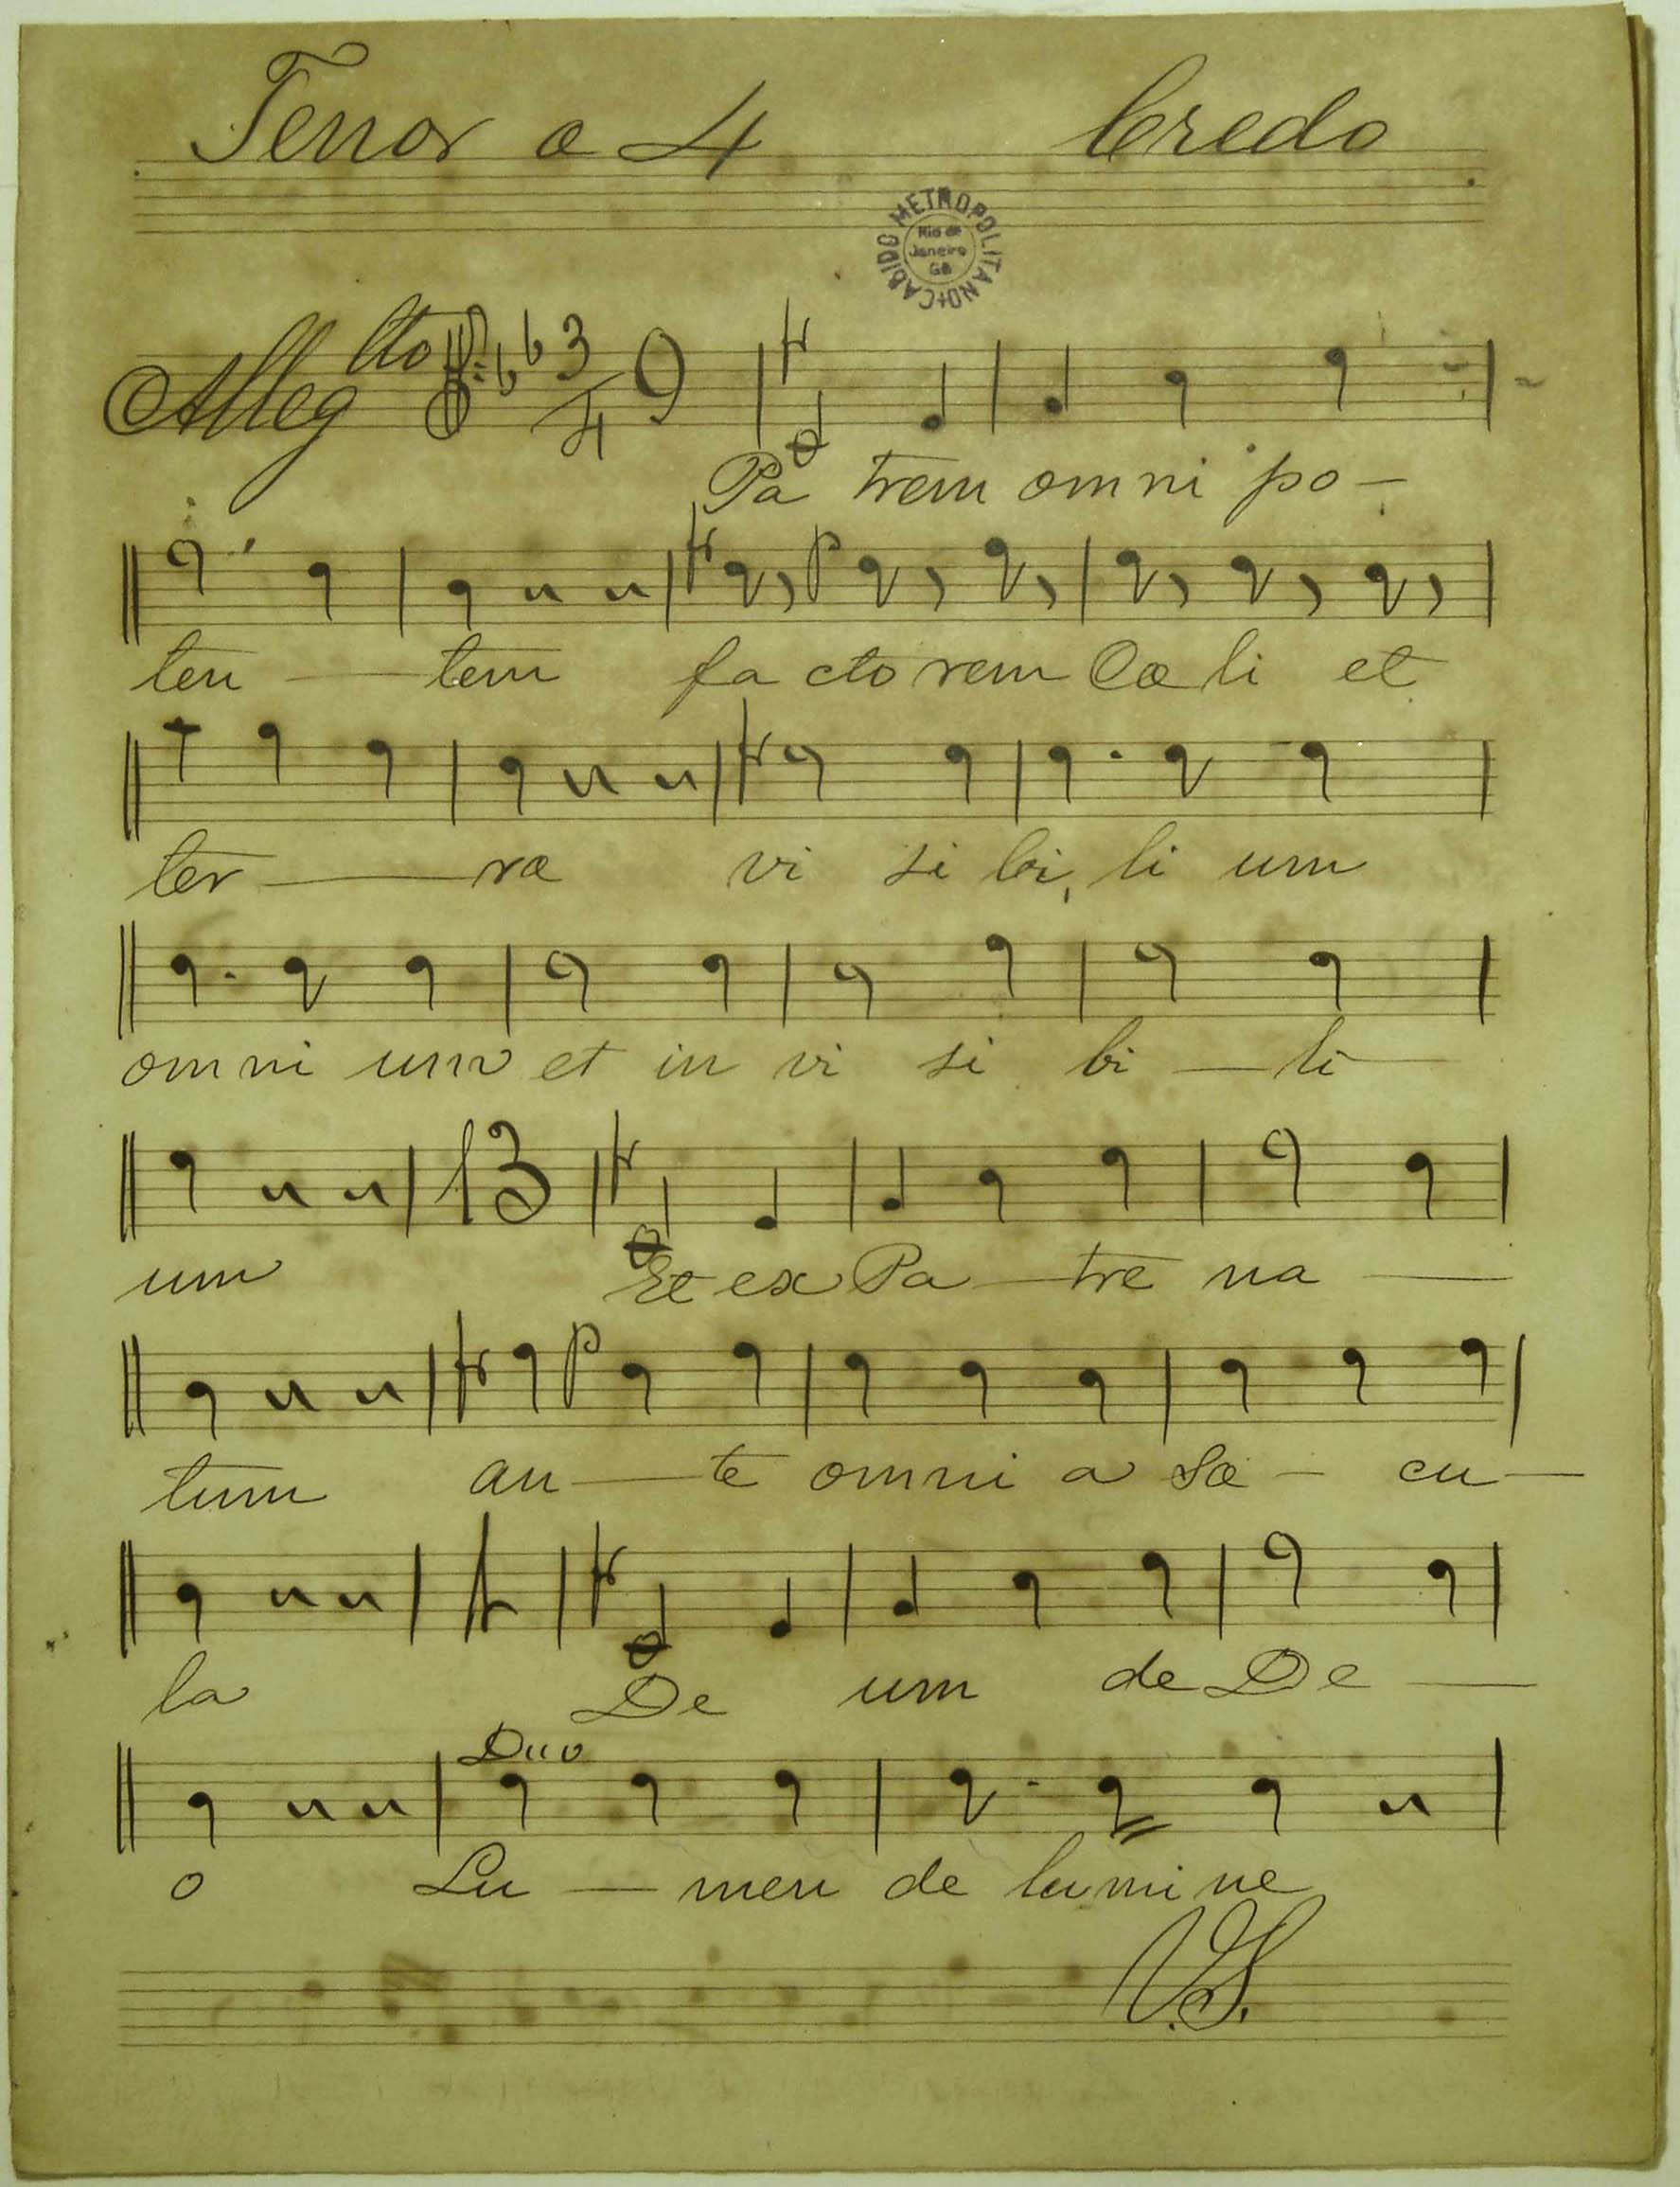 Tenor a 4 Credo
CABIDO METROPOLITANO
Rio de
Janeiro
GB
Alleg tto 3/4 9
Pa trem omni po -
ten - tem fa cto rem Cœ li et
ter - ræ vi si bi li um
omni um et in vi si bi - li -
13
um Et ex Pa - tre na -
p
tum an - te omni a sæ - cu -
la De um de De -
Duo
o Lu - men de lumi ne
V.S.